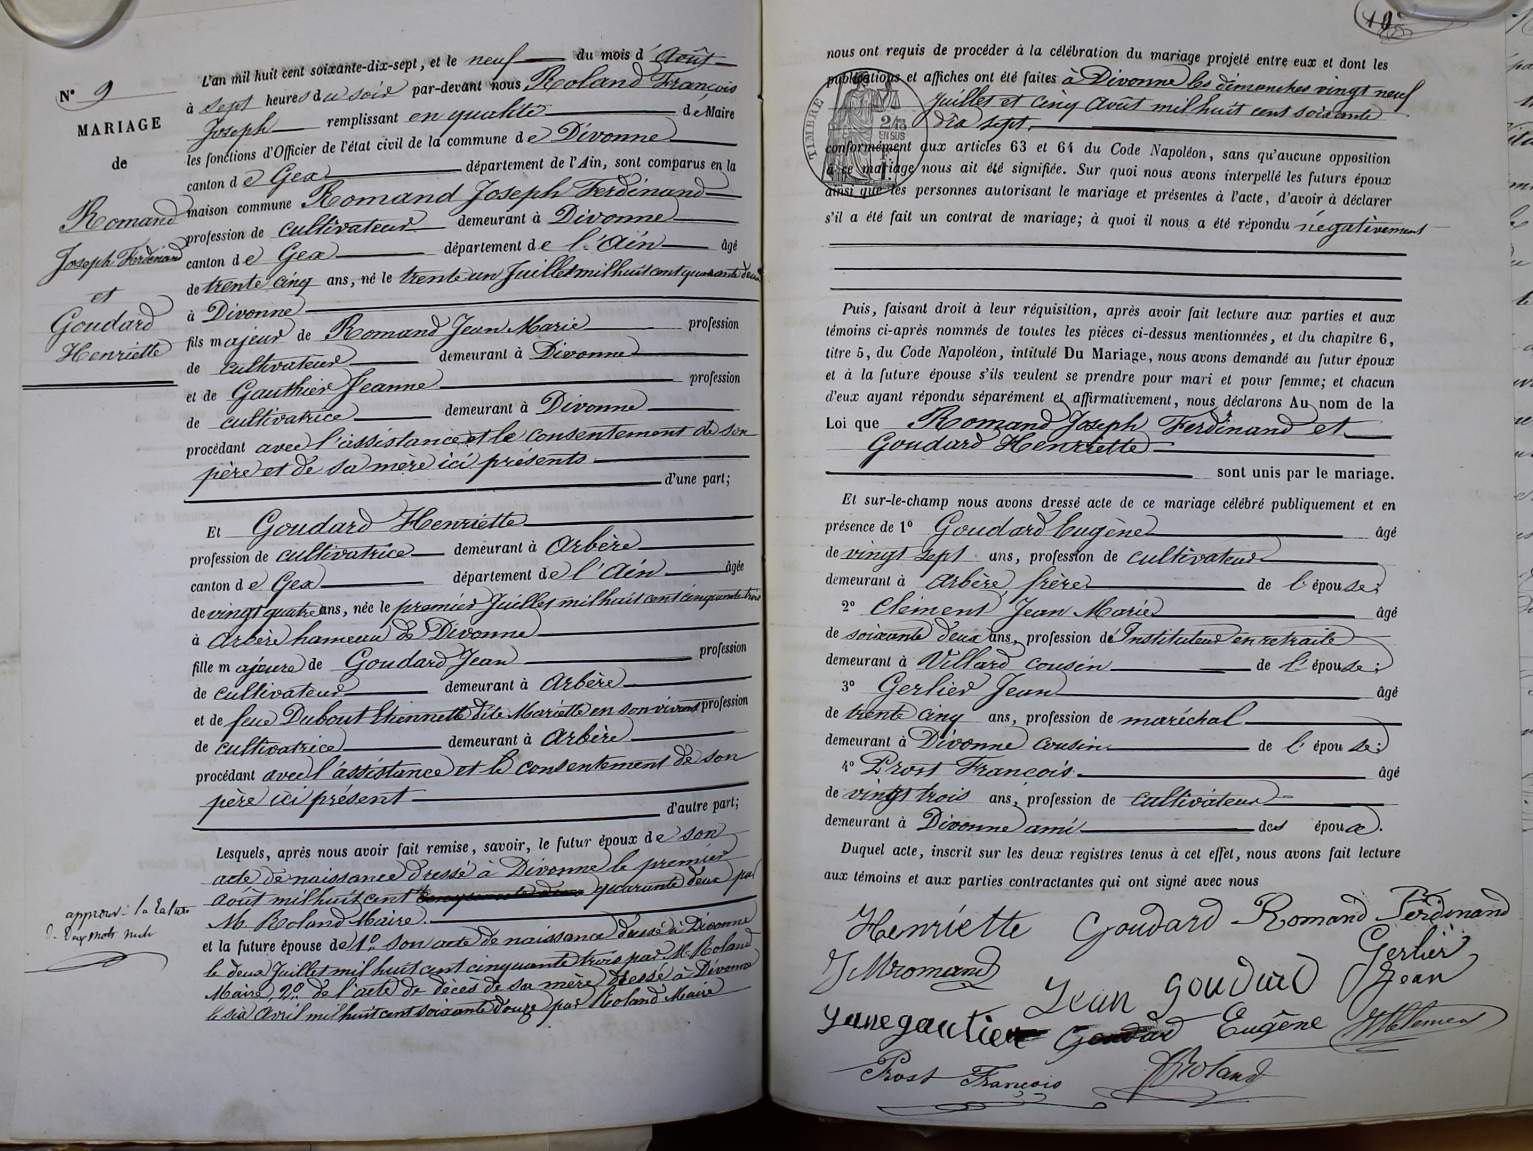 N° 9
MARIAGE
de
Romand
Joseph Ferdinand
et
Goudard
Henriette
approuvé la rature
de deux mots nuls
L'an mil huit cent soixante-dix-sept, et le neuf du mois d'Août
à sept heures du soir par-devant nous Roland François
Joseph remplissant en qualité de Maire
les fonctions d'Officier de l'état civil de la commune de Divonne
canton de Gex département de l'Ain, sont comparus en la
maison commune Romand Joseph Ferdinand
profession de cultivateur demeurant à Divonne
canton de Gex département de l'Ain âgé
de trente cinq ans, né le trente un Juillet mil huit cent quarante deux
à Divonne
fils majeur de Romand Jean Marie profession
de cultivateur demeurant à Divonne
et de Gauthier Jeanne profession
de cultivatrice demeurant à Divonne
procédant avec l'assistance et le consentement de son
père et de sa mère ici présents
d'une part;
Et Goudard Henriette
profession de cultivatrice demeurant à Arbère
canton de Gex département de l'Ain âgée
de vingt quatre ans, née le premier Juillet mil huit cent cinquante trois
à Arbère hameau de Divonne
fille majeure de Goudard Jean profession
de cultivateur demeurant à Arbère
et de feue Dubout Etiennette dite Mariette en son vivant profession
de cultivatrice demeurant à Arbère
procédant avec l'assistance et le consentement de son
père ici présent
d'autre part;
Lesquels, après nous avoir fait remise, savoir, le futur époux de son
acte de naissance dressé à Divonne le premier
août mil huit cent cinquante deux quarante deux par
M. Roland Maire.
et la future épouse de 1° son acte de naissance dressé à Divonne
le deux Juillet mil huit cent cinquante trois par M. Roland
Maire, 2° de l'acte de décès de sa mère dressé à Divonne
le six avril mil huit cent soixante douze par Roland Maire
10
nous ont requis de procéder à la célébration du mariage projeté entre eux et dont les
publications et affiches ont été faites à Divonne les dimanches vingt neuf
Juillet et cinq Août mil huit cent soixante
dix sept.
TIMBRE
2/10
EN SUS
conformément aux articles 63 et 64 du Code Napoléon, sans qu'aucune opposition
à ce mariage nous ait été signifiée. Sur quoi nous avons interpellé les futurs époux
ainsi que les personnes autorisant le mariage et présentes à l'acte, d'avoir à déclarer
s'il a été fait un contrat de mariage; à quoi il nous a été répondu négativement
Puis, faisant droit à leur réquisition, après avoir fait lecture aux parties et aux
témoins ci-après nommés de toutes les pièces ci-dessus mentionnées, et du chapitre 6,
titre 5, du Code Napoléon, intitulé Du Mariage, nous avons demandé au futur époux
et à la future épouse s'ils veulent se prendre pour mari et pour femme; et chacun
d'eux ayant répondu séparément et affirmativement, nous déclarons Au nom de la
Loi que Romand Joseph Ferdinand et
Goudard Henriette
sont unis par le mariage.
Et sur-le-champ nous avons dressé acte de ce mariage célébré publiquement et en
présence de 1° Goudard Eugène âgé
de vingt sept ans, profession de cultivateur
demeurant à Arbère, frère de l'épouse;
2° Clément Jean Marie âgé
de soixante deux ans, profession de Instituteur en retraite
demeurant à Villard cousin de l'épouse;
3° Gerlier Jean âgé
de trente cinq ans, profession de maréchal
demeurant à Divonne cousin de l'épouse;
4° Prost François âgé
de vingt trois ans, profession de cultivateur
demeurant à Divonne ami des époux.
Duquel acte, inscrit sur les deux registres tenus à cet effet, nous avons fait lecture
aux témoins et aux parties contractantes qui ont signé avec nous
Henriette Goudard Romand Ferdinand
J M romand Jean Goudard Gerlier
Jean
Jane gautier Goudard Eugène JM Clément
Prost François Roland